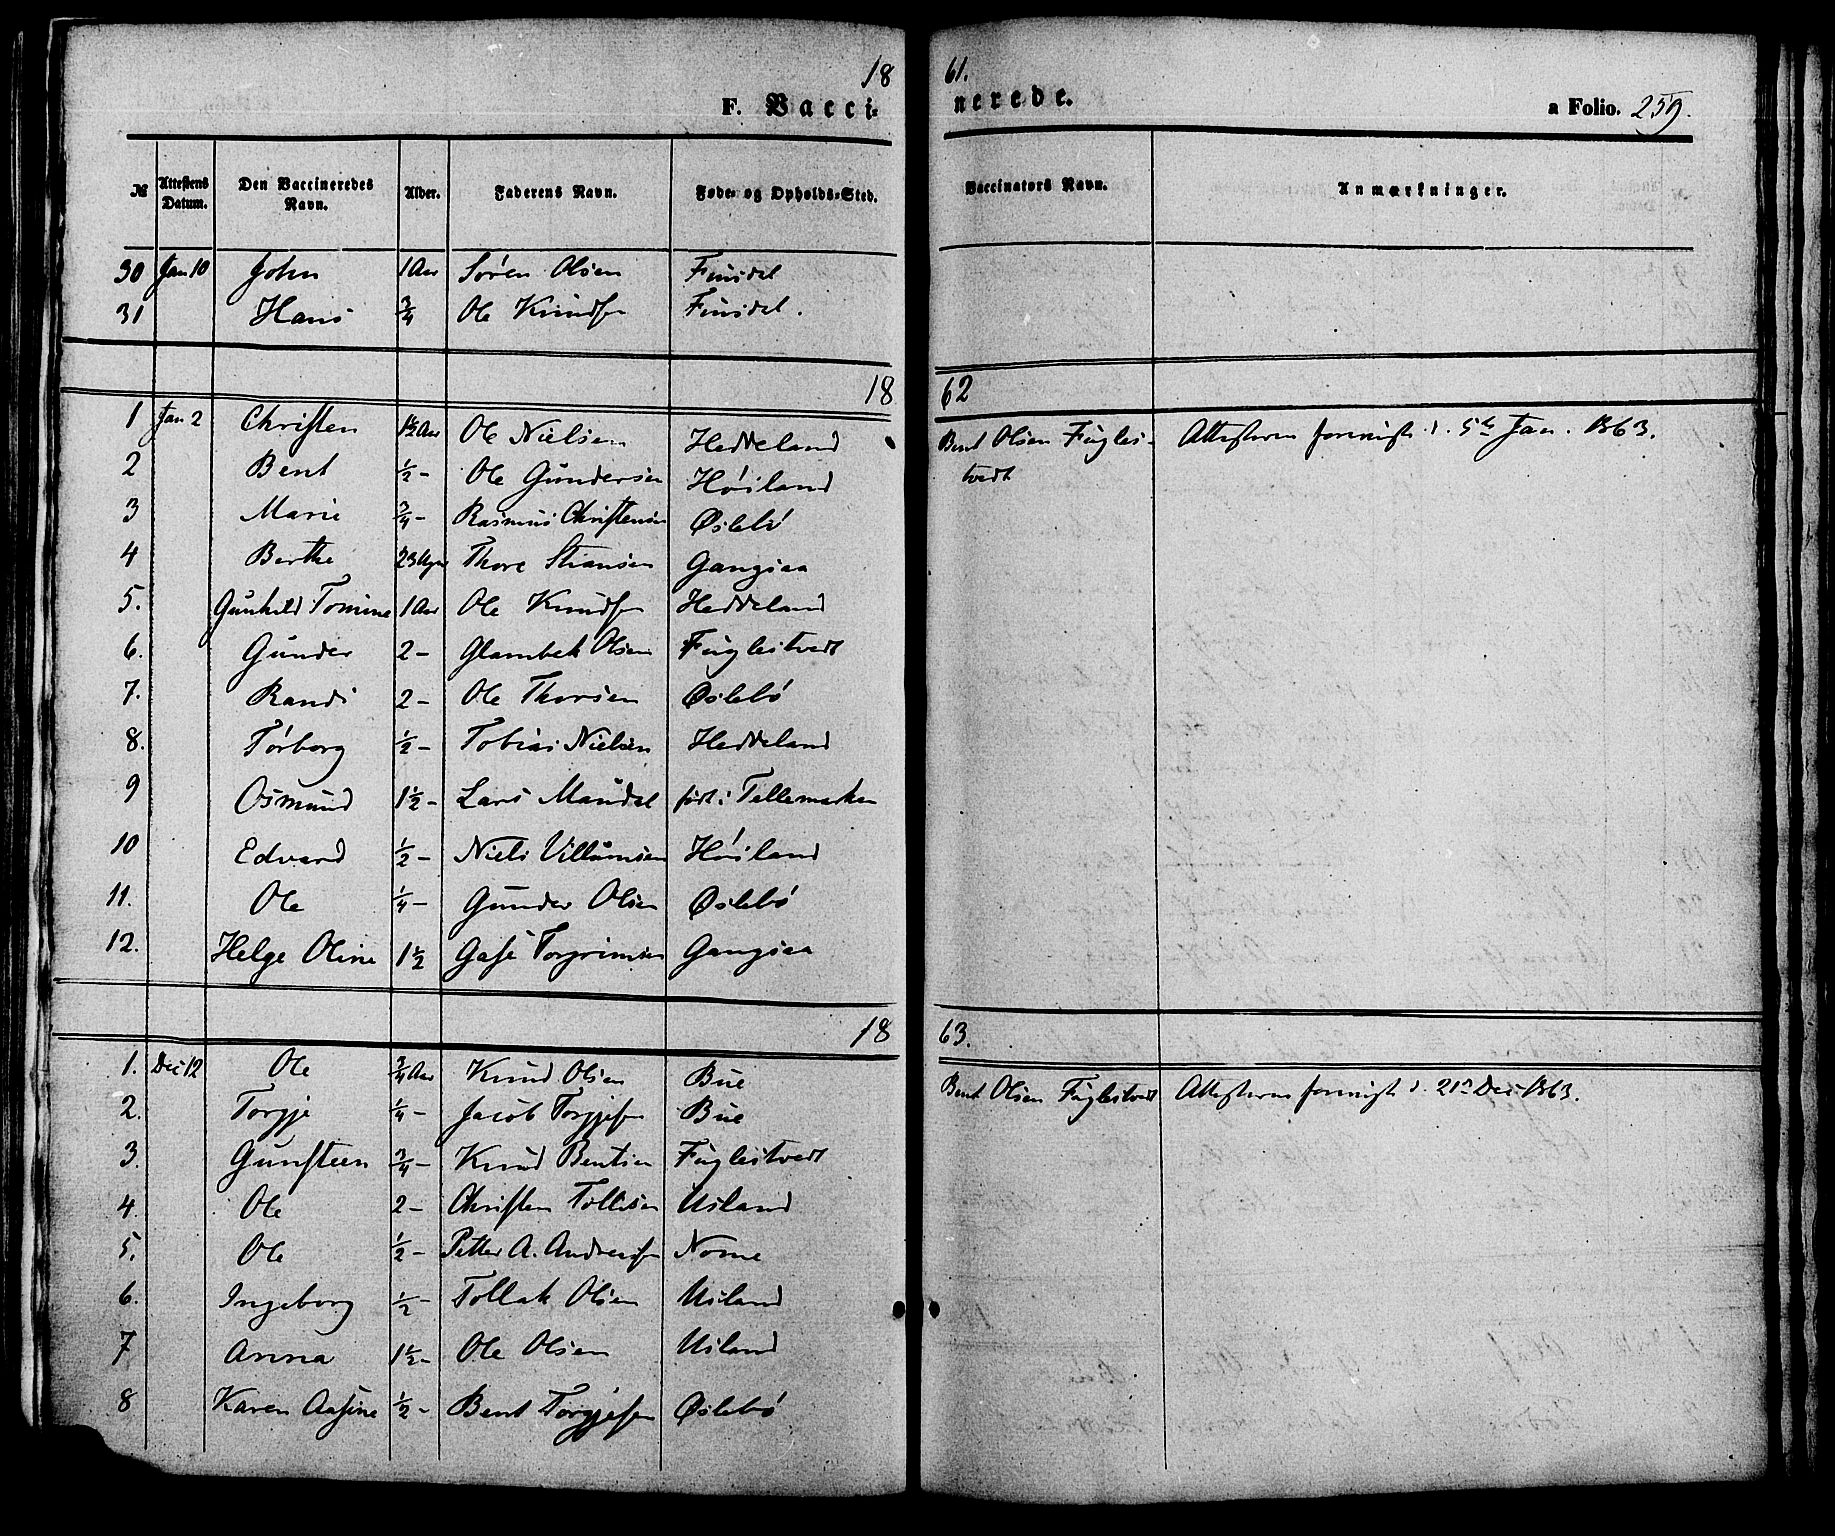 18 61.
F. Vacci= nerede. a Folio. 259.
№ Attestens Datum. Den Vaccineredes Navn. Alder. Faderens Navn. Føde- og Opholds-Sted. Vaccinators Navn. Anmærkninger.
30 Jan 10 John 1 Aar Søren Olsen Finsdal
31 Hans 3/4 Ole Knudsen Finsdal.
18 62
1 Jan 2 Christen 1½ Aar Ole Nielsen Heddeland Bent Olsen Fugles- Attesterne foreviist d. 5te Jan. 1863.
2 Bent ½ - Ole Gundersen Høiland tvedt
3 Marie 3/4 - Rasmus Christensen Øslebø
4 Berthe 23 Uger Thore Stiansen Gangsaa
5. Gunhild Tomine 1 Aar Ole Knudsen Heddeland
6. Gunder 2 - Glambek Olsen Fuglestvedt
7. Randi 2 - Ole Thorsen Øslebø
8. Tørborg ½ - Tobias Nielsen Heddeland
9 Osmund 1½ - Lars Mandal født i Tellemarken
10 Edvard ½ - Niels Villumsen Høiland
11. Ole ¼ - Gunder Olsen Øslebø
12. Helge Oline 1½ Torgrimsen Gangsaa
18 63.
1. Dec 12 Ole 3/4 Aar Knud Olsen Bue Bent Olsen Fuglestvedt Attesterne foreviist d. 21de Dec. 1863.
2. Torgje ¼ - Jacob Torgjesen Bue
3. Gunsteen 3/4 - Knud Bentsen Fuglestvedt
4. Ole 2 - Christen Tollisen Usland
5. Ole ½ - Petter A. Andersen Nome
6. Ingeborg ½ - Tollak Olsen Usland
7 Anna 1½ - Ole Olsen Usland
8 Karen Aasine ½ - Bent Torgjesen Øslebø